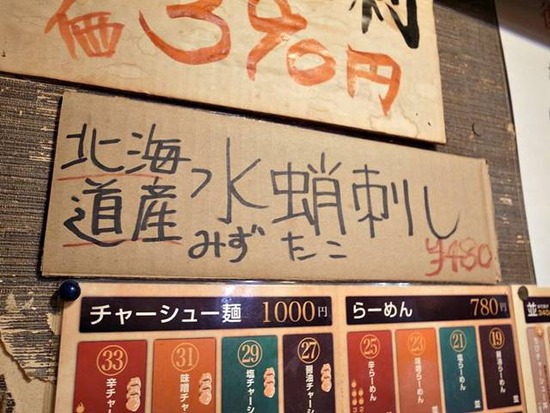 価390円
北海道産 水蛸刺し
みずたこ
¥480
チャーシュー麺 1000円
らーめん 780円
並
33 辛チャー
31 味噌チャー
29 塩チャーシ
27 醤油チャーシュ
25 辛らーめん
23 味噌らーめん
21 塩らーめん
19 醤油らーめん